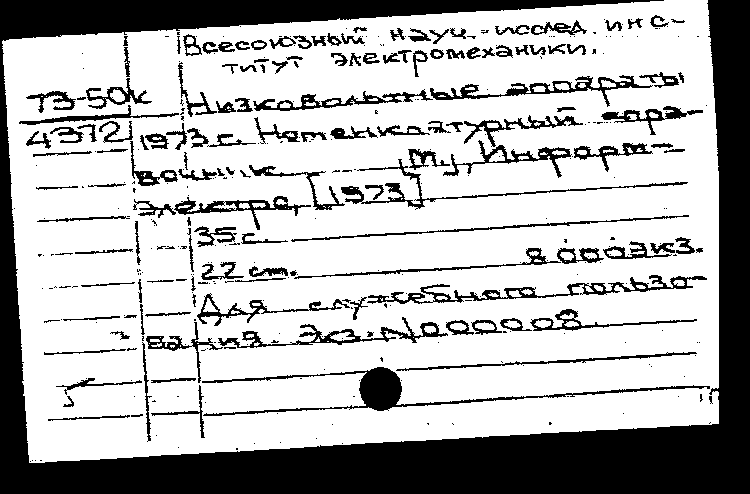 Всесоюзный науч.-исслед. инс-
титут электромеханики.
73-50к Низковольтные аппараты
4372 1973 г. Номенклатурный спра-
вочник. [М.], Информ-
электро, [1973].
35 с.
22 см. 8000экз.
Для служебного пользо-
вания. Экз. N 000008.